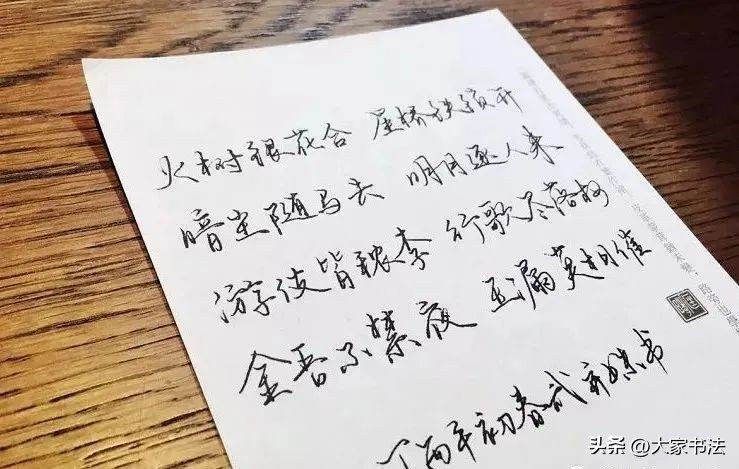 火树银花合 星桥铁锁开
暗尘随马去 明月逐人来
游伎皆秾李 行歌尽落梅
金吾不禁夜 玉漏莫相催
丁酉年初春 书
头条 @大家书法